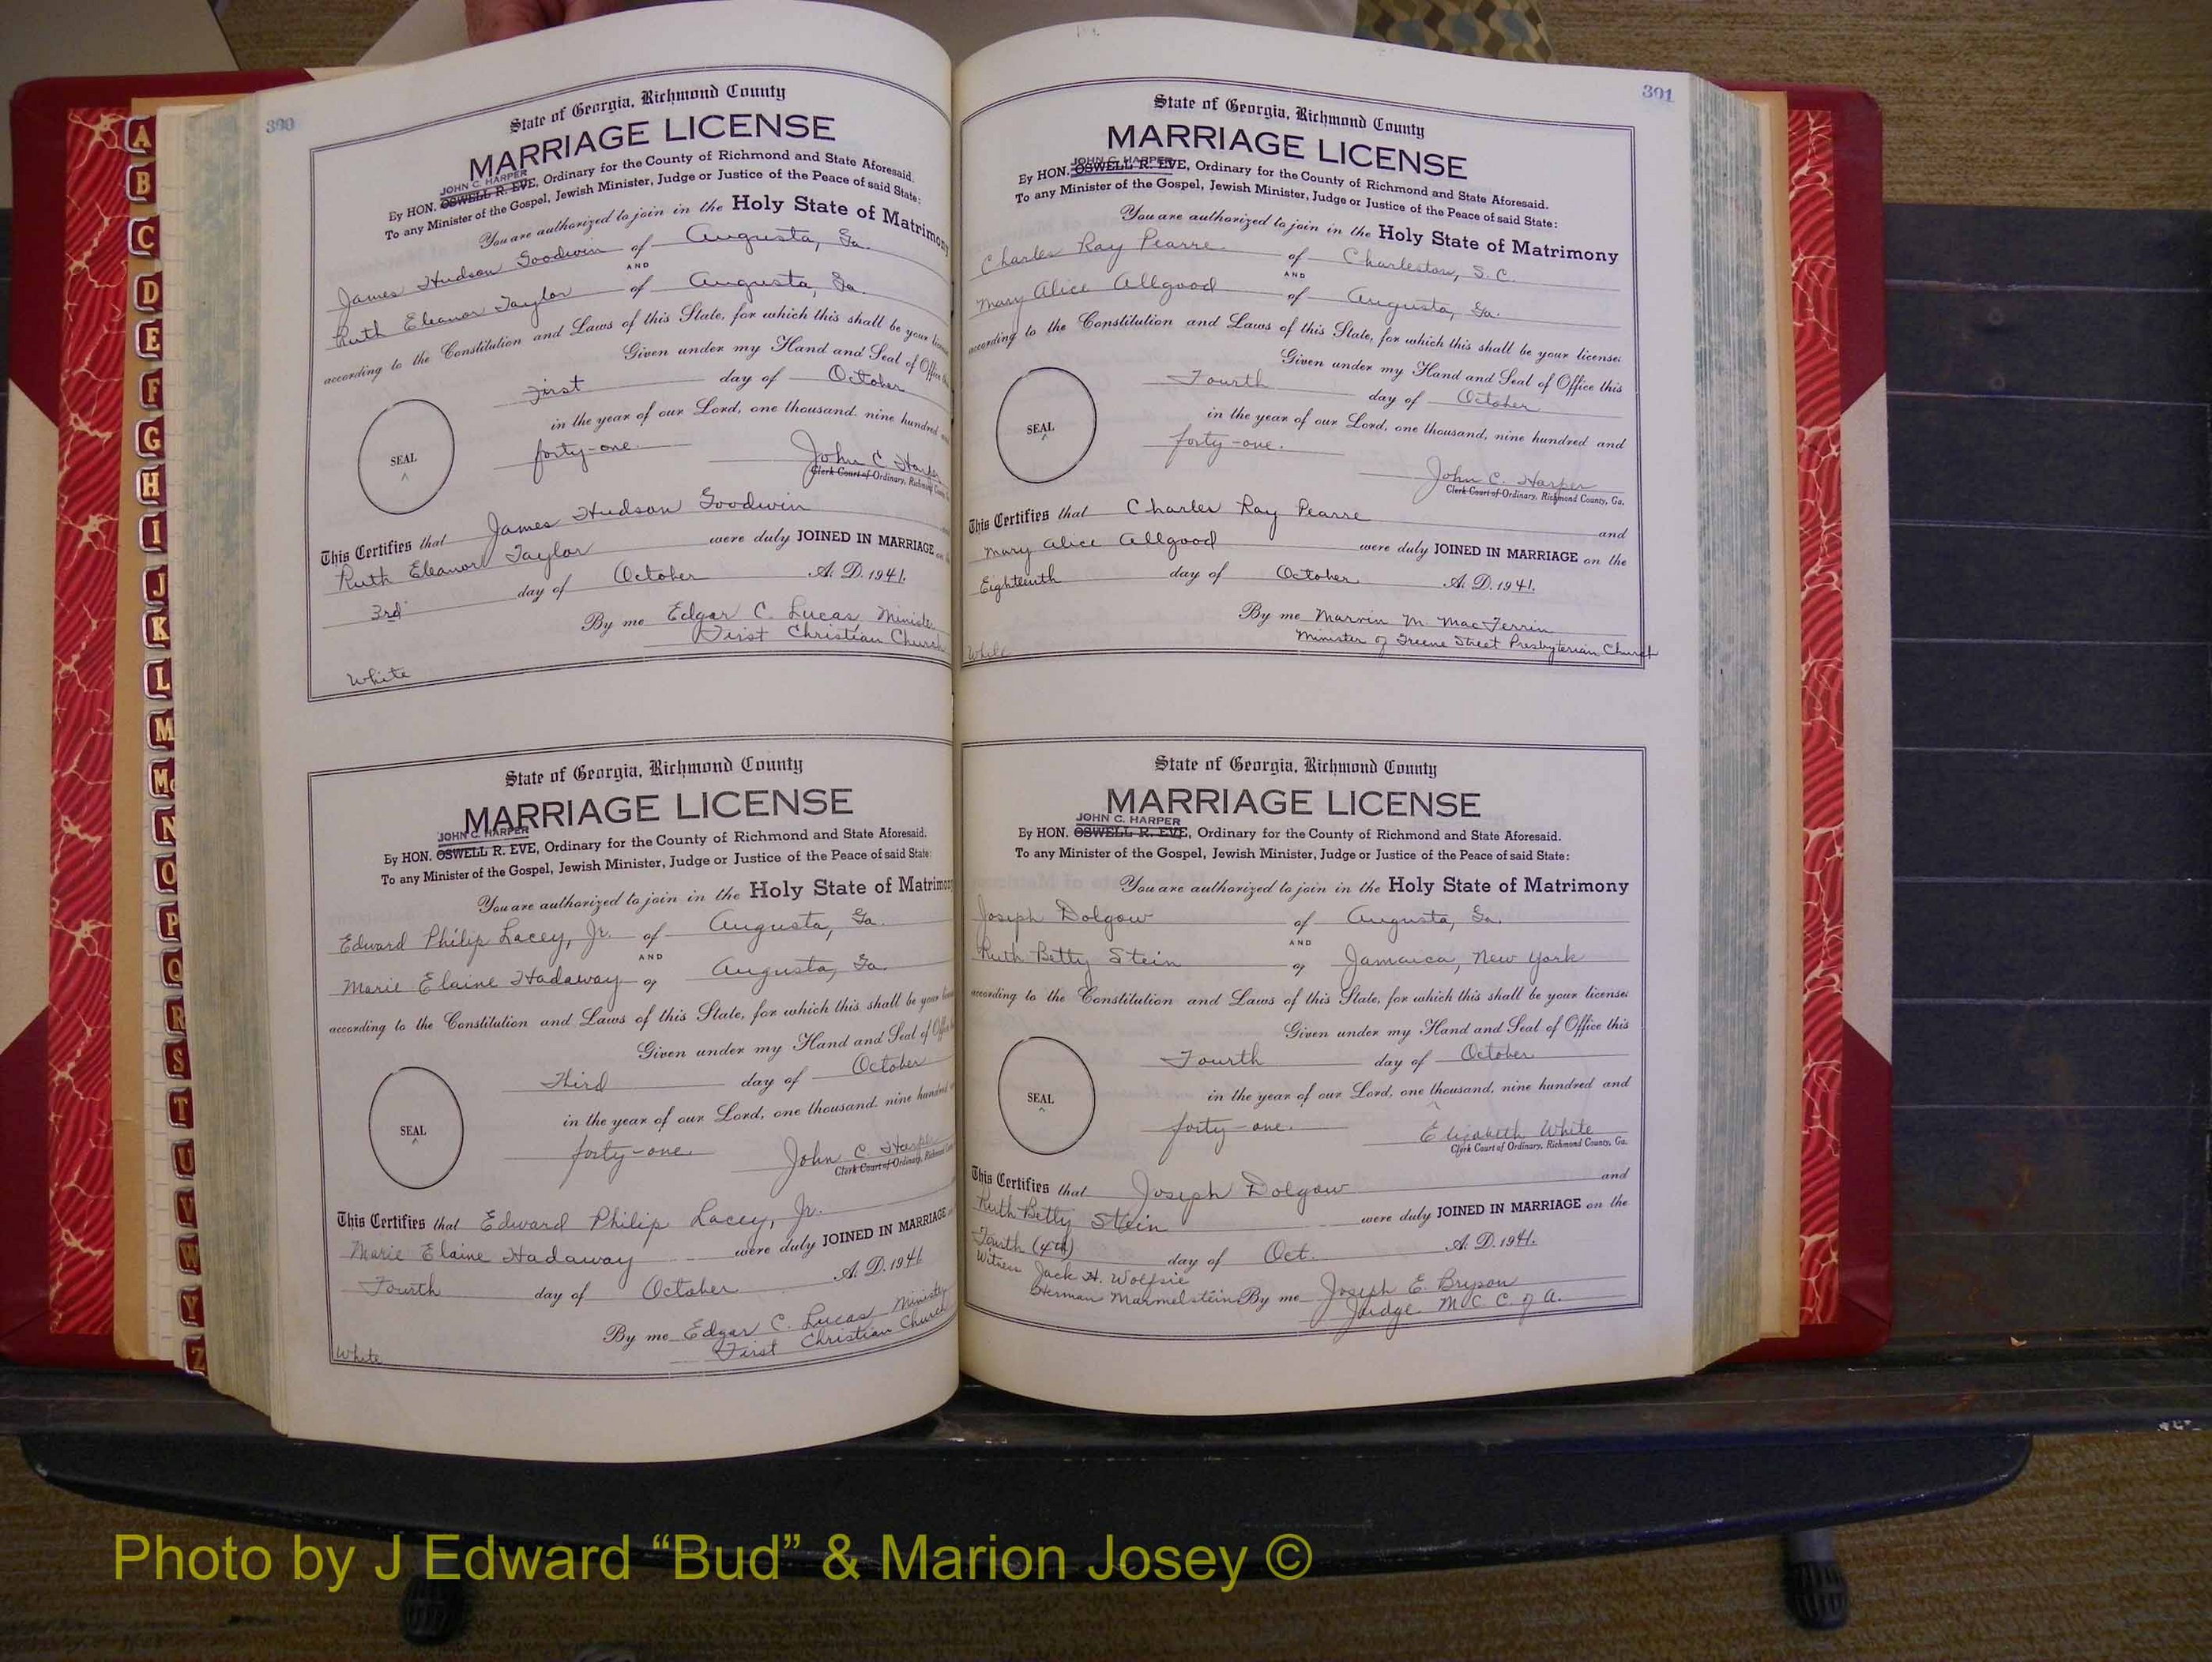 A
B
C
D
E
F
G
H
I
J
K
L
M
Mc
N
O
P
Q
R
S
T
U
V
W
Y
Z
300
State of Georgia, Richmond County
MARRIAGE LICENSE
JOHN C. HARPER
By HON. OSWELL R. EVE, Ordinary for the County of Richmond and State Aforesaid.
To any Minister of the Gospel, Jewish Minister, Judge or Justice of the Peace of said State:
You are authorized to join in the Holy State of Matrimony
James Hudson Goodwin of Augusta, Ga.
AND
Ruth Eleanor Taylor of Augusta, Ga.
according to the Constitution and Laws of this State, for which this shall be your
Given under my Hand and Seal of Office
First day of October
in the year of our Lord, one thousand, nine hundred
forty-one.
SEAL
John C Harper
Clerk Court of Ordinary, Richmond
This Certifies that James Hudson Goodwin
Ruth Eleanor Taylor were duly JOINED IN MARRIAGE
3rd day of October A. D. 1941.
By me Edgar C. Lucas, Minister
First Christian Church
White
State of Georgia, Richmond County
MARRIAGE LICENSE
JOHN C. HARPER
By HON. OSWELL R. EVE, Ordinary for the County of Richmond and State Aforesaid.
To any Minister of the Gospel, Jewish Minister, Judge or Justice of the Peace of said State:
You are authorized to join in the Holy State of Matrimony
Edward Philip Lacey, Jr. of Augusta, Ga.
AND
Marie Elaine Hadaway of Augusta, Ga.
according to the Constitution and Laws of this State, for which this shall be your
Given under my Hand and Seal of
Third day of October
in the year of our Lord, one thousand, nine hundred
forty-one.
SEAL
John C Harper
Clerk Court of Ordinary, Richmond
This Certifies that Edward Philip Lacey, Jr.
Marie Elaine Hadaway were duly JOINED IN MARRIAGE
Fourth day of October A. D. 1941
By me Edgar C. Lucas Minister
First Christian Church
White
301
State of Georgia, Richmond County
MARRIAGE LICENSE
JOHN C. HARPER
By HON. OSWELL R. EVE, Ordinary for the County of Richmond and State Aforesaid.
To any Minister of the Gospel, Jewish Minister, Judge or Justice of the Peace of said State:
You are authorized to join in the Holy State of Matrimony
Charles Ray Pearre of Charleston, S. C.
AND
Mary Alice Allgood of Augusta, Ga.
according to the Constitution and Laws of this State, for which this shall be your license:
Given under my Hand and Seal of Office this
Fourth day of October
in the year of our Lord, one thousand, nine hundred and
forty-one.
SEAL
John C. Harper
Clerk Court of Ordinary, Richmond County, Ga.
This Certifies that Charles Ray Pearre and
Mary Alice Allgood were duly JOINED IN MARRIAGE on the
Eighteenth day of October A. D. 1941.
By me Marvin M. MacFerrin
Minister of Greene Street Presbyterian Church
White
State of Georgia, Richmond County
MARRIAGE LICENSE
JOHN C. HARPER
By HON. OSWELL R. EVE, Ordinary for the County of Richmond and State Aforesaid.
To any Minister of the Gospel, Jewish Minister, Judge or Justice of the Peace of said State:
You are authorized to join in the Holy State of Matrimony
Joseph Dolgow of Augusta, Ga.
AND
Ruth Betty Stein of Jamaica, New York
according to the Constitution and Laws of this State, for which this shall be your license:
Given under my Hand and Seal of Office this
Fourth day of October
in the year of our Lord, one thousand, nine hundred and
forty-one.
SEAL
Elizabeth White
Clerk Court of Ordinary, Richmond County, Ga.
This Certifies that Joseph Dolgow and
Ruth Betty Stein were duly JOINED IN MARRIAGE on the
Fourth (4th) day of Oct. A. D. 1941.
Witness Jack H. Wolfsie
Herman Marmelstein By me Joseph E. Bryson
Judge M. C. C. of A.
Photo by J Edward “Bud” & Marion Josey ©